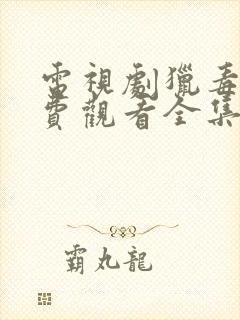 電視劇獵毒
費觀看全集
霸丸龍